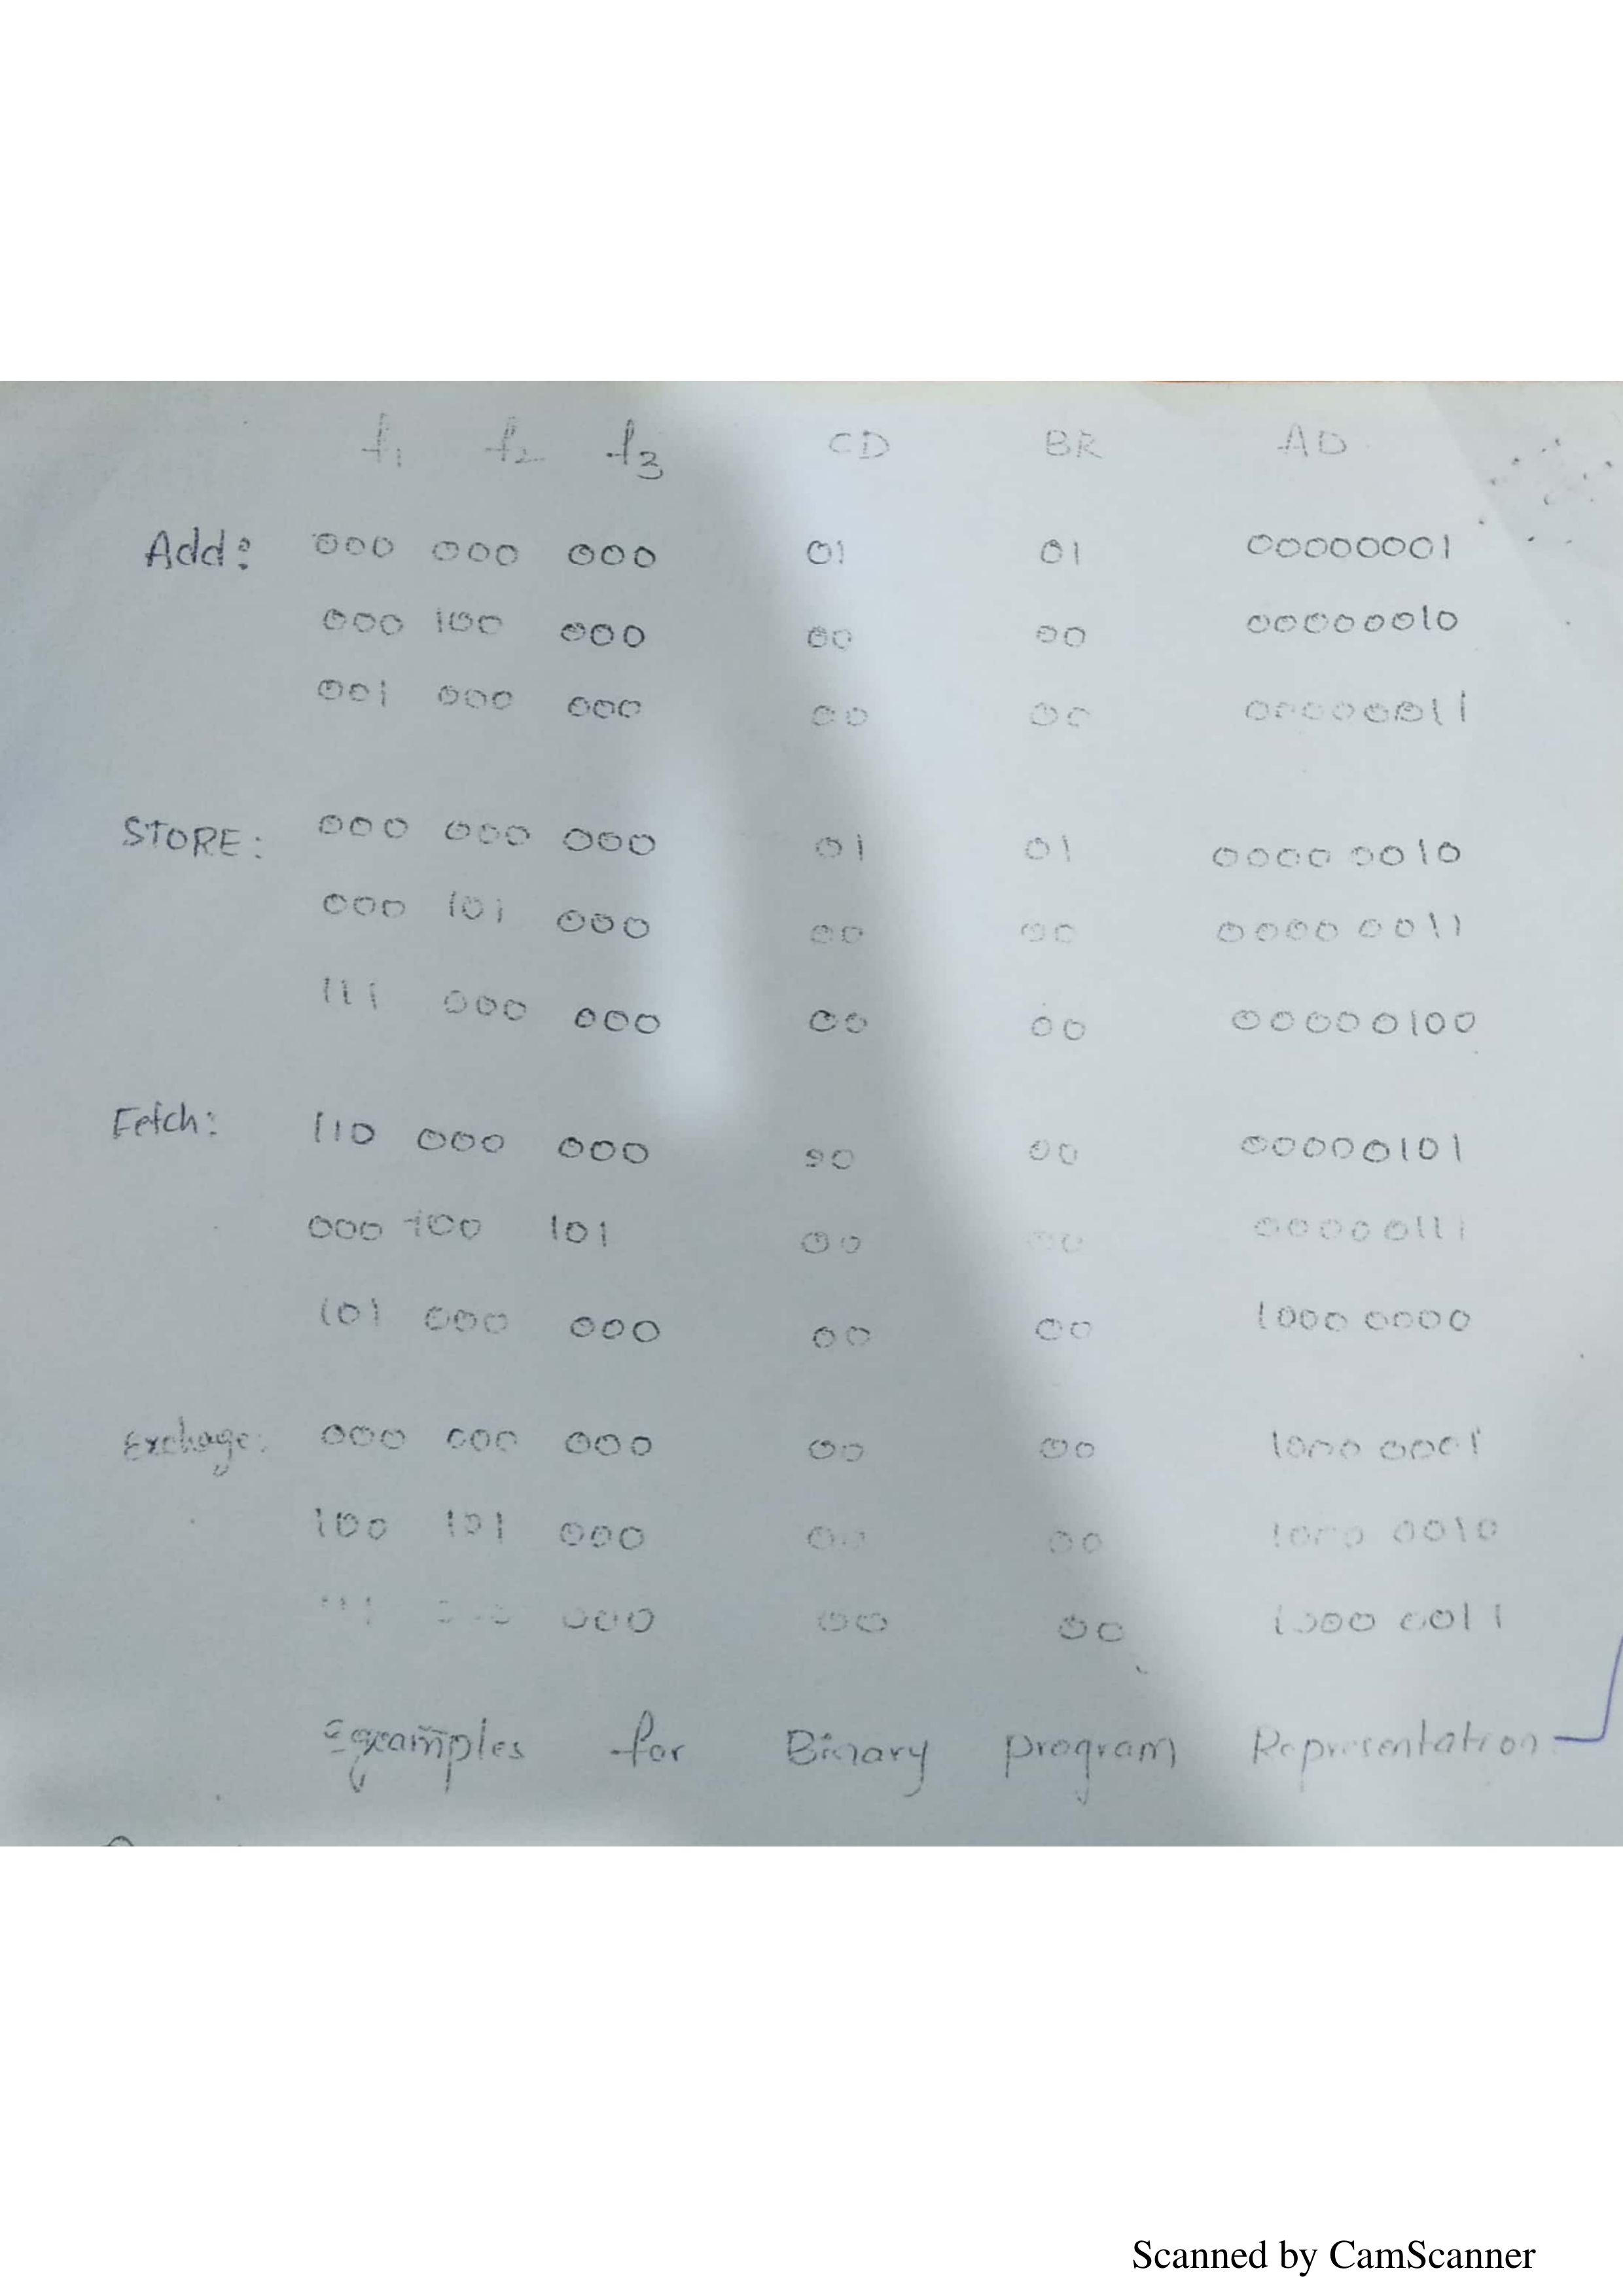 f1 f2 f3 CD BR AD
Add: 000 000 000 01 01 00000001
000 100 000 00 00 00000010
001 000 000 00 00 00000011
STORE: 000 000 000 01 01 0000 0010
000 101 000 00 00 0000 0011
111 000 000 00 00 00000100
Fetch: 110 000 000 00 00 00000101
000 100 101 00 00 00000111
101 000 000 00 00 1000 0000
Exchage: 000 000 000 00 00 1000 0001
100 101 000 00 00 1000 0010
111 000 000 00 00 1000 0011
for Binary program Representation
Scanned by CamScanner